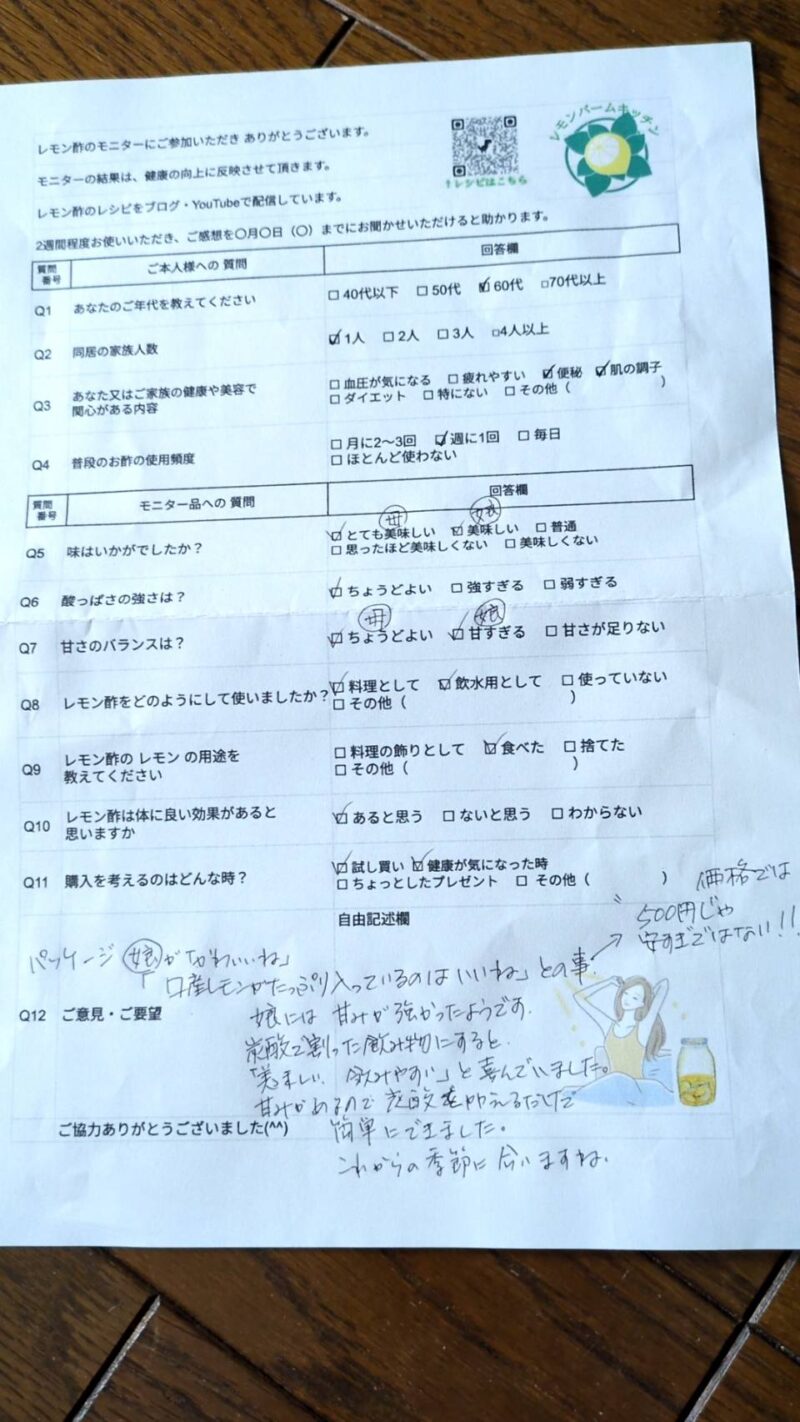 レモン酢のモニターにご参加いただき ありがとうございます。
モニターの結果は、健康の向上に反映させて頂きます。
レモン酢のレシピをブログ・YouTubeで配信しています。
↑レシピはこちら
レモンバームキッチン
2週間程度お使いいただき、ご感想を〇月〇日（〇）までにお聞かせいただけると助かります。
質問番号 ご本人様への 質問 回答欄
Q1 あなたのご年代を教えてください □ 40代以下 □ 50代 ☑ 60代 □70代以上
Q2 同居の家族人数 ☑ 1人 □ 2人 □ 3人 □4人以上
Q3 あなた又はご家族の健康や美容で関心がある内容 □ 血圧が気になる □ 疲れやすい ☑ 便秘 ☑ 肌の調子
□ ダイエット □ 特にない □ その他（ ）
Q4 普段のお酢の使用頻度 □ 月に2〜3回 ☑ 週に1回 □ 毎日
□ ほとんど使わない
質問番号 モニター品への 質問 回答欄
母 娘
Q5 味はいかがでしたか？ ☑ とても美味しい ☑ 美味しい □ 普通
□ 思ったほど美味しくない □ 美味しくない
Q6 酸っぱさの強さは？ ☑ ちょうどよい □ 強すぎる □ 弱すぎる
母 娘
Q7 甘さのバランスは？ ☑ ちょうどよい ☑ 甘すぎる □ 甘さが足りない
Q8 レモン酢をどのようにして使いましたか？ ☑ 料理として ☑ 飲水用として □ 使っていない
□ その他（ ）
Q9 レモン酢の レモン の用途を教えてください □ 料理の飾りとして ☑ 食べた □ 捨てた
□ その他（ ）
Q10 レモン酢は体に良い効果があると思いますか ☑ あると思う □ ないと思う □ わからない
Q11 購入を考えるのはどんな時？ ☑ 試し買い ☑ 健康が気になった時
□ ちょっとしたプレゼント □ その他（ ）
自由記述欄
価格では
500円じゃ
安すぎではない!!
パッケージ 娘が「かわいいね」
「口産レモンがたっぷり入っているのはいいね」との事
Q12 ご意見・ご要望
娘には 甘みが強かったようです.
炭酸で割った飲み物にすると.
「美味しい. 飲みやすい」と喜んでいました。
甘みがあるので 炭酸を加えるだけで
簡単にできました。
これからの季節に合いますね.
ご協力ありがとうございました(^^)